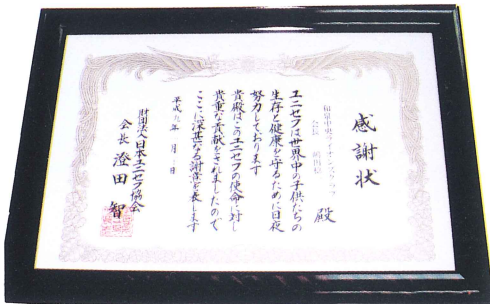 感謝状
和泉中央ライオンズクラブ
会長
殿
ユニセフは世界中の子供たちの
生存と健康を守るために日夜
努力しております
貴殿はこのユニセフの使命に対し
貴重な貢献をされましたので
ここに深甚なる謝意を表します
平成九年 月 日
財団法人日本ユニセフ協会
会長 澄田 智